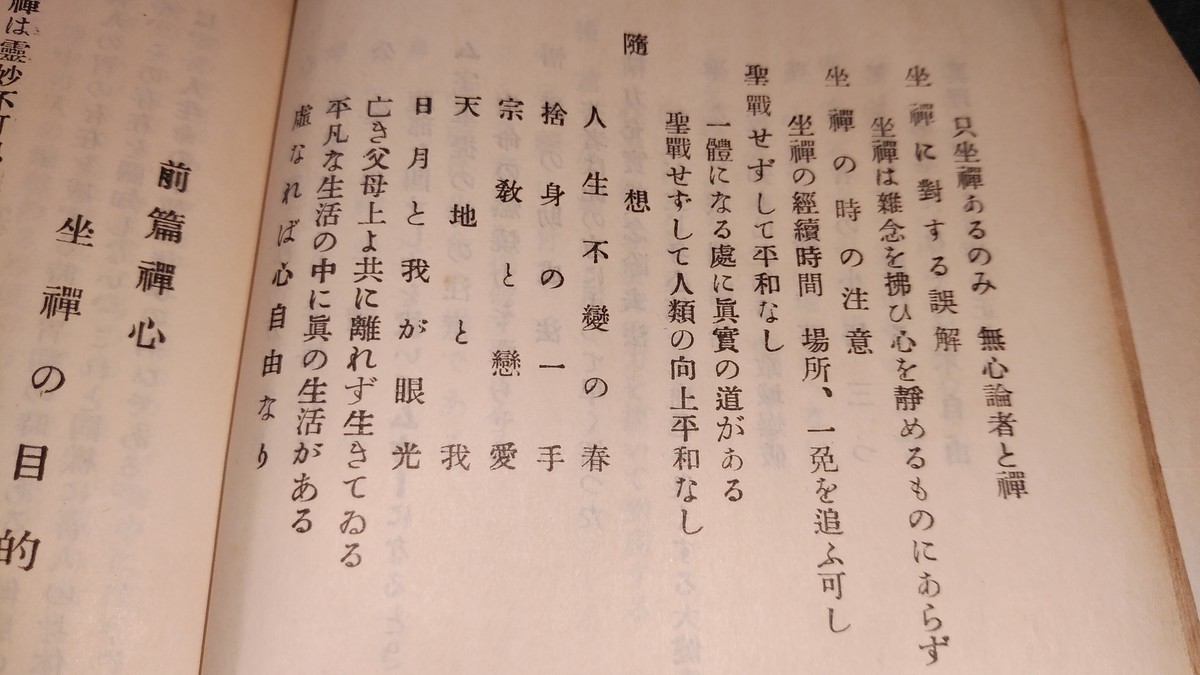 只坐禪あるのみ 無心論者と禪
坐禪に對する誤解
坐禪は雜念を拂ひ心を靜めるものにあらず
坐禪の時の注意
坐禪の經續時間 場所、一兎を追ふ可し
聖戰せずして平和なし
一體になる處に眞實の道がある
聖戰せずして人類の向上平和なし
隨想
人生不變の春
捨身の法一手
宗敎と戀愛
天地と我
日月と我が眼光
亡き父母上よ共に離れず生きてゐる
平凡な生活の中に眞の生活がある
虛なれば心自由なり
前篇禪心
坐禪の目的
禪は靈妙不可